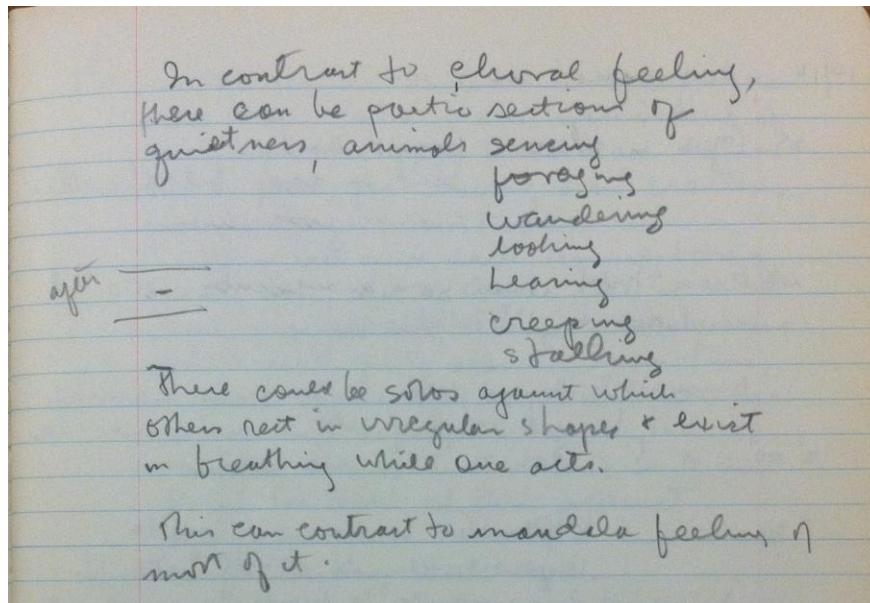 In contrast to choral feeling,
there can be poetic sections of
quietness, animals sensing
foraging
wandering
looking
hearing
creeping
stalking
after
There could be solos against which
others rest in irregular shapes & exist
in breathing while one acts.
This can contrast to mandala feeling of
most of it.